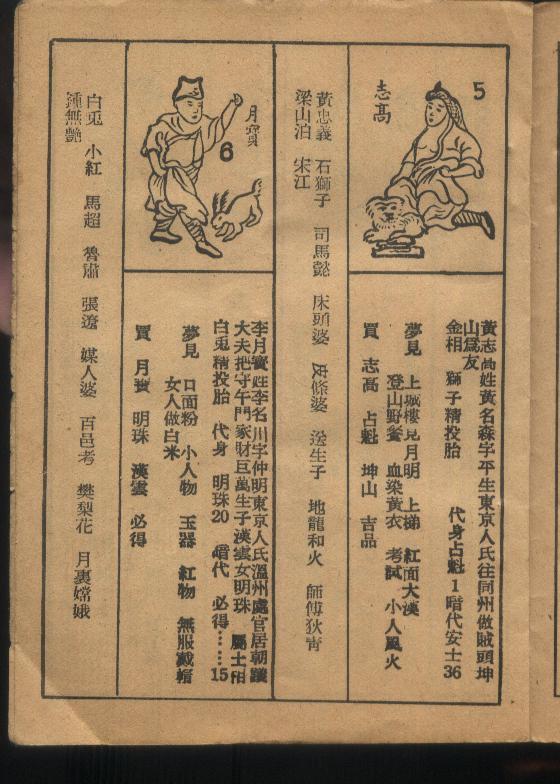 5
志高
黃志高姓黃名森字平生東京人氏往同州做賊頭坤
山爲友
金相 獅子精投胎 代身占魁1暗代安士36
夢見 上城樓見月明 上梯 紅面大漢
登山野獸 血染黃衣 考試 小人風火
買 志高 占魁 坤山 吉品
黃忠義 石獅子 司馬懿 床頭婆 皮條婆 送生子 地龍和火 師傅狄青
梁山泊 宋江
6
月寶
李月寶姓李名川字仲明東京人氏溫州處官居朝議
大夫把守午門家財巨萬生子漢雲女明珠 屬土
白兎精投胎 代身 明珠20 暗代 必得……15
夢見 口面粉 小人物 玉器 紅物 無服戴帽
女人做白米
買 月寶 明珠 漢雲 必得
白兎 小紅 馬超 魯肅 張遼 媒人婆 百邑考 樊梨花 月裏嫦娥
鍾無艷